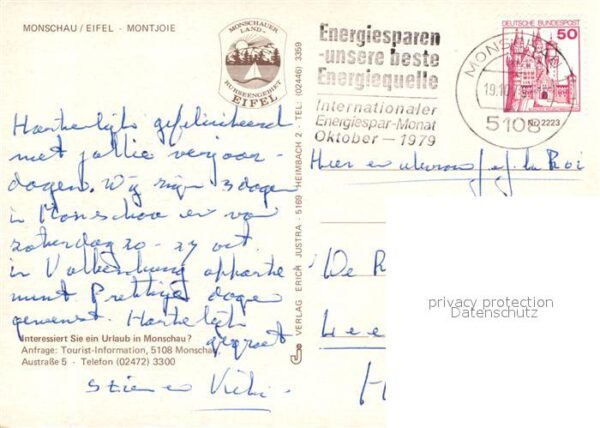 MONSCHAU / EIFEL - MONTJOIE
MONSCHAUER
LAND-
RURSEENGEBIET
EIFEL
Energiesparen
-unsere beste
Energiequelle
Internationaler
Energiespar-Monat
Oktober — 1979
DEUTSCHE BUNDESPOST
50
MONSCHAU
19.10.79
5108
Hartelijk gefeliciteerd
met jullie verjaar-
dagen. Wij zijn 3 dagen
in Monschau en van
zaterdag 20 - 27 oct.
in Valkenburg apparte
ment Prettige dagen
gewenst. Hartelijk
gegroet
Interessiert Sie ein Urlaub in Monschau?
Anfrage: Tourist-Information, 5108 Monschau
Austraße 5 - Telefon (02472) 3300
VERLAG ERICH JUSTRA · 5169 HEIMBACH 2 - TEL: (02446) 3359
Nr. 2223
Hier en
De
privacy protection
Datenschutz